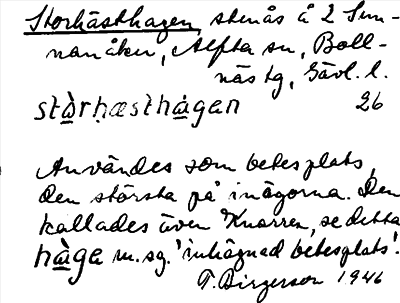 Storhästhagen, stenås å 2 Sun-
nanåker, Alfta sn, Boll-
näs tg, Gävl. l.
stòrḥæsthàgen 26
Användes som betesplats,
den största på inägorna. Den
kallades även Knorren, se detta
hàga m. sg. 'inhägnad betesplats'.
T. Birgerson 1946